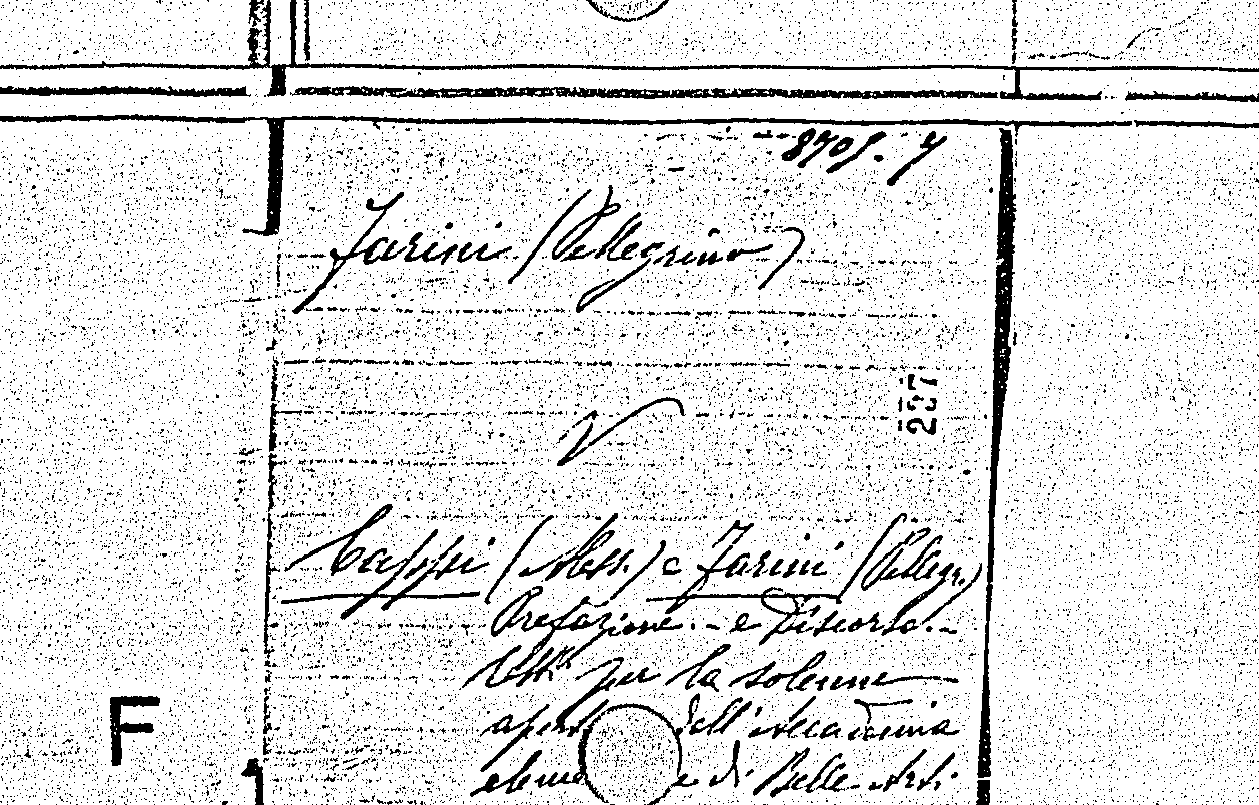 8705. 4
Farini (Pellegrino)
V
237
Cappi (Aless.) e Farini (Pellegr.)
Prefazione. - e Discorso. -
letti per la solenne
apert dell'Accademia
eleme e di Belle Arti
F